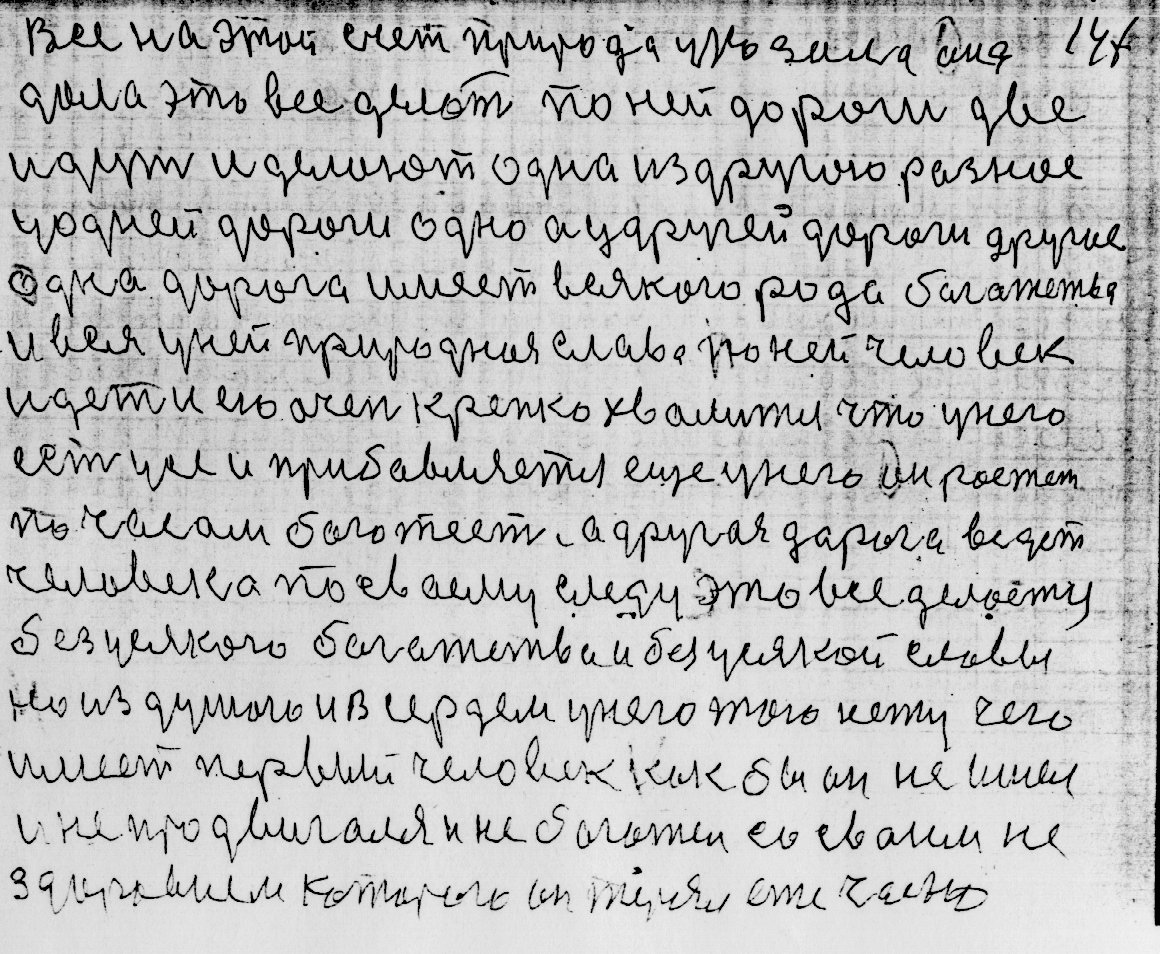 Все на этой счет природа указала она 147
дала это все делат по ней дороги две
идут и делают одна из другою разное
у одней дороги одно а у другей дороги другое
одна дорога имеет всякого рода богатетва
и вся у ней природная слава по ней человек
идет и его очен крепко хвалити что у него
ест усе и прибавляетя еще у него он ростет
по часам богатеет а другая дарога ведет
человека по сваему следу это все делаетя
без усякого богатства и без усякой славы
но из душою и в сердем у него того нету чего
имеет первый человек как бы он не имел
и не продвигаля и не богател со сваим не
здоровием которого он терял